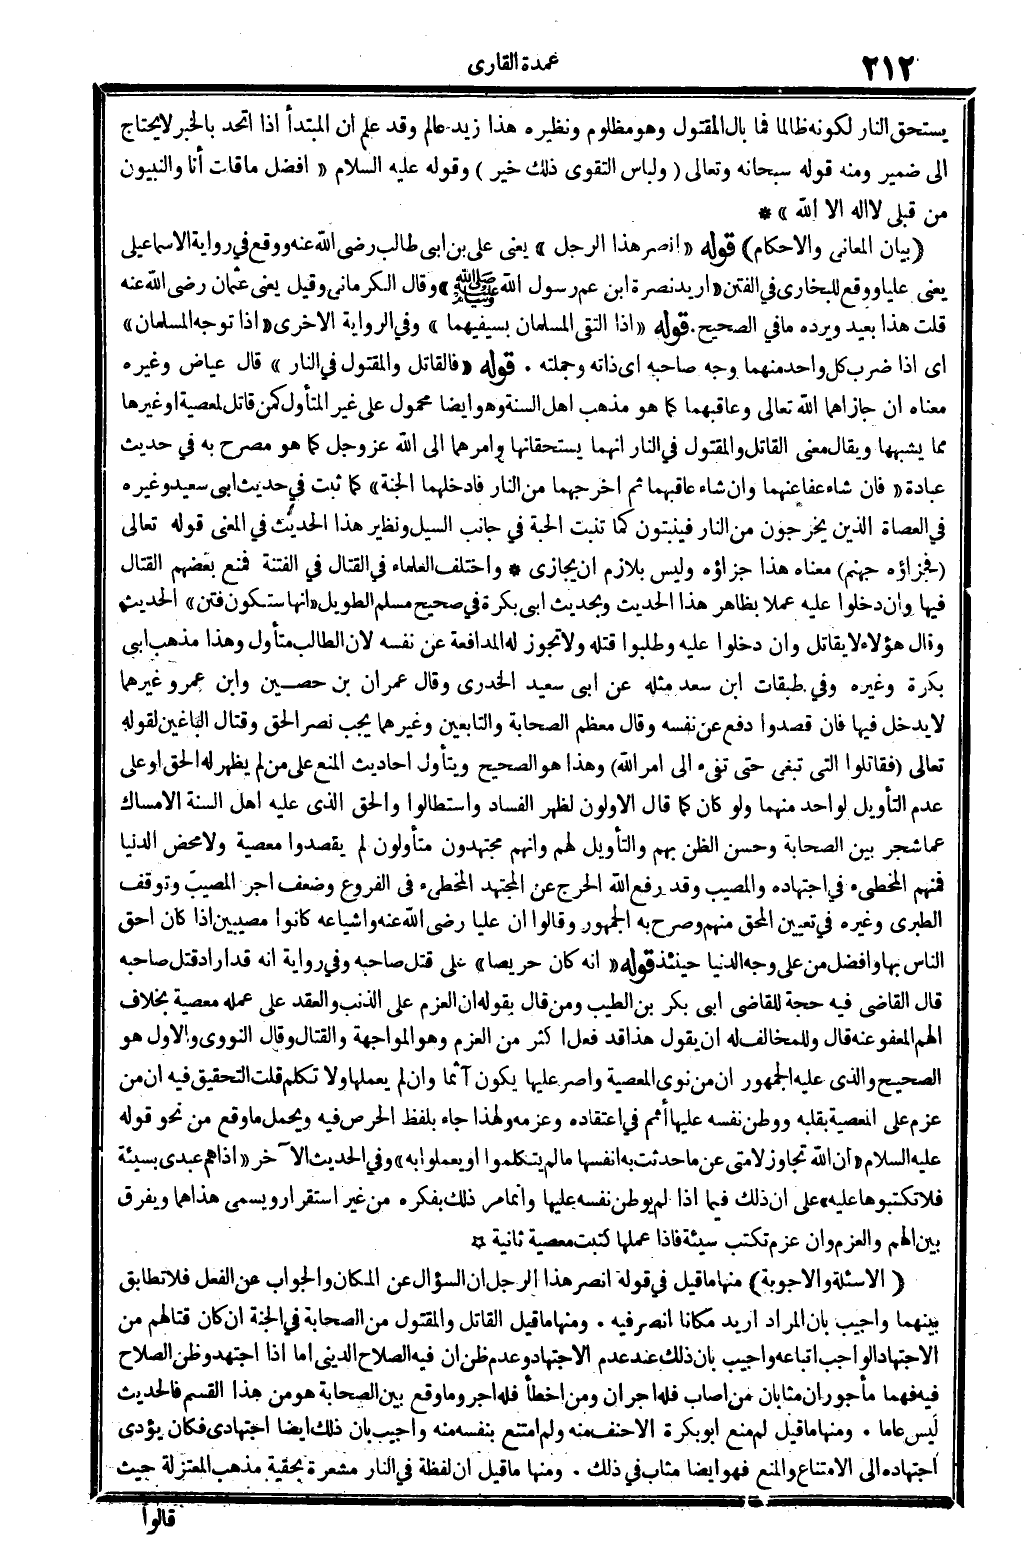 ٢١٢
عمدة القارى
يستحق النار لكونه ظالما فما بال المقتول وهو مظلوم ونظيره هذا زيد عالم وقد علم ان المبتدأ اذا اتحد بالخبر لا يحتاج
الى ضمير ومنه قوله سبحانه وتعالى ( ولباس التقوى ذلك خير ) وقوله عليه السلام « افضل ماقات أنا والنبيون
من قبلى لااله الا الله » *
(بيان المعانى والاحكام) قوله « انصر هذا الرجل » يعنى على بن ابى طالب رضى الله عنه ووقع فى رواية الاسماعيلى
يعنى عليا ووقع للبخارى فى الفتن « اريد نصرة ابن عم رسول الله ﷺ » وقال الكرمانى وقيل يعنى عثمان رضى الله عنه
قلت هذا بعيد ويرده مافى الصحيح. قوله « اذا التقى المسلمان بسيفيهما » وفى الرواية الاخرى « اذا توجه المسلمان »
اى اذا ضرب كل واحد منهما وجه صاحبه اى ذاته وجملته . قوله « فالقاتل والمقتول فى النار » قال عياض وغيره
معناه ان جازاهما الله تعالى وعاقبهما كما هو مذهب اهل السنة وهو ايضا محمول على غير المتأول كمن قاتل لمعصية اوغيرها
مما يشبهها ويقال معنى القاتل والمقتول فى النار انهما يستحقانها وامرهما الى الله عزوجل كما هو مصرح به فى حديث
عبادة « فان شاء عفا عنهما وان شاء عاقبهما ثم اخرجهما من النار فادخلهما الجنة » كما ثبت فى حديث ابى سعيد وغيره
فى العصاة الذين يخرجون من النار فينبتون كما تنبت الحبة فى جانب السيل ونظير هذا الحديث فى المعنى قوله تعالى
(فجزاؤه جهنم) معناه هذا جزاؤه وليس بلازم ان يجازى * واختلف العلماء فى القتال فى الفتنة فمنع بعضهم القتال
فيها وان دخلوا عليه عملا بظاهر هذا الحديث وبحديث ابى بكرة فى صحيح مسلم الطويل « انها ستكون فتن » الحديث
وقال هؤلاء لايقاتل وان دخلوا عليه وطلبوا قتله ولا تجوز له المدافعة عن نفسه لان الطالب متأول وهذا مذهب ابى
بكرة وغيره وفى طبقات ابن سعد مثله عن ابى سعيد الخدرى وقال عمران بن حصين وابن عمر وغيرهما
لايدخل فيها فان قصدوا دفع عن نفسه وقال معظم الصحابة والتابعين وغيرهما يجب نصر الحق وقتال الباغين لقوله
تعالى (فقاتلوا التى تبغى حتى تفىء الى امر الله) وهذا هو الصحيح ويتأول احاديث المنع على من لم يظهر له الحق او على
عدم التأويل لواحد منهما ولو كان كما قال الاولون لظهر الفساد واستطالوا والحق الذى عليه اهل السنة الامساك
عما شجر بين الصحابة وحسن الظن بهم والتأويل لهم وانهم مجتهدون متأولون لم يقصدوا معصية ولا محض الدنيا
فمنهم المخطىء فى اجتهاده والمصيب وقد رفع الله الحرج عن المجتهد المخطىء فى الفروع وضعف اجر المصيب وتوقف
الطبرى وغيره فى تعيين المحق منهم وصرح به الجمهور وقالوا ان عليا رضى الله عنه واشياعه كانوا مصيبين اذا كان احق
الناس بها وافضل من على وجه الدنيا حينئذ قوله « انه كان حريصا » على قتل صاحبه وفى رواية انه قد اراد قتل صاحبه
قال القاضى فيه حجة للقاضى ابى بكر بن الطيب ومن قال بقوله ان العزم على الذنب والعقد على عمله معصية بخلاف
الهم المعفو عنه قال وللمخالف له ان يقول هذا قد فعل اكثر من العزم وهو المواجهة والقتال وقال النووى والاول هو
الصحيح والذى عليه الجمهور ان من نوى المعصية واصر عليها يكون آثما وان لم يعملها ولا تكلم قلت التحقيق فيه ان من
عزم على المعصية بقلبه ووطن نفسه عليها أثم فى اعتقاده وعزمه ولهذا جاء بلفظ الحرص فيه ويحمل ماوقع من نحو قوله
عليه السلام « ان الله تجاوز لامتى عن ما حدثت به انفسها مالم يتكلموا او يعملوا به » وفى الحديث الآخر « اذا هم عبدى بسيئة
فلا تكتبوها عليه » على ان ذلك فيما اذا لم يوطن نفسه عليها وانما مر ذلك بفكره من غير استقرار ويسمى هذا هما ويفرق
بين الهم والعزم وان عزم تكتب سيئة فاذا عملها كتبت معصية ثانية *
( الاسئلة والاجوبة) منها ماقيل فى قوله انصر هذا الرجل ان السؤال عن المكان والجواب عن الفعل فلا تطابق
بينهما واجيب بان المراد اريد مكانا انصر فيه . ومنها ماقيل القاتل والمقتول من الصحابة فى الجنة ان كان قتالهم من
الاجتهاد الواجب اتباعه واجيب بان ذلك عند عدم الاجتهاد وعدم ظن ان فيه الصلاح الدينى اما اذا اجتهد وظن الصلاح
فيه فهما مأجوران مثابان من اصاب فله اجران ومن اخطأ فله اجر وما وقع بين الصحابة هو من هذا القسم فالحديث
ليس عاما . ومنها ماقيل لم منع ابو بكرة الاحنف منه ولم امتنع بنفسه منه واجيب بان ذلك ايضا اجتهادى فكان يؤدى
اجتهاده الى الامتناع والمنع فهو ايضا مثاب فى ذلك . ومنها ماقيل ان لفظة فى النار مشعرة بحقية مذهب المعتزلة حيث
قالوا